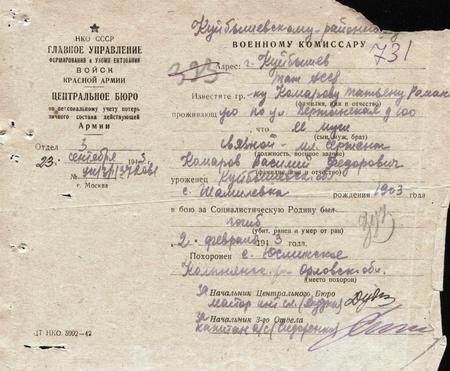 НКО СССР
ГЛАВНОЕ УПРАВЛЕНИЕ
ФОРМИРОВАНИЯ и УКОМПЛЕКТОВАНИЯ
ВОЙСК
КРАСНОЙ АРМИИ
ЦЕНТРАЛЬНОЕ БЮРО
по персональному учету потерь
личного состава действующей
Армии
Отдел 3
23 сентября 1943 г.
№
г. Москва
17 НКО. 5992-42
Куйбышевскому-районному
ВОЕННОМУ КОМИССАРУ
731
Адрес: г. Куйбышев
Тат АССР
Известите гр-ку Комарову Татьяну Роман
(фамилия, имя и отчество)
проживающую по ул
что ее муж
(сын, муж, брат)
связной - мл. сержант
(должность, военное звание)
Комаров Василий Федорович
(фамилия, имя и отчество)
уроженец Куйбышевский
с. рождения 1903 года
в бою за Социалистическую Родину был
погиб
(убит, ранен и умер от ран)
2 февраля 1943 года
Похоронен с.
Орловск. обл.
(место похорон)
Начальник Центрального Бюро
майор
Начальник 3-го Отдела
капитан а/с (Сидоренко)